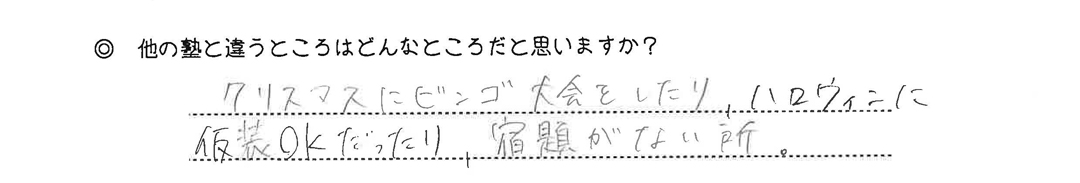 ◎ 他の塾と違うところはどんなところだと思いますか？
クリスマスにビンゴ大会をしたり,ハロウィンに
仮装OKだったり,宿題がない所。